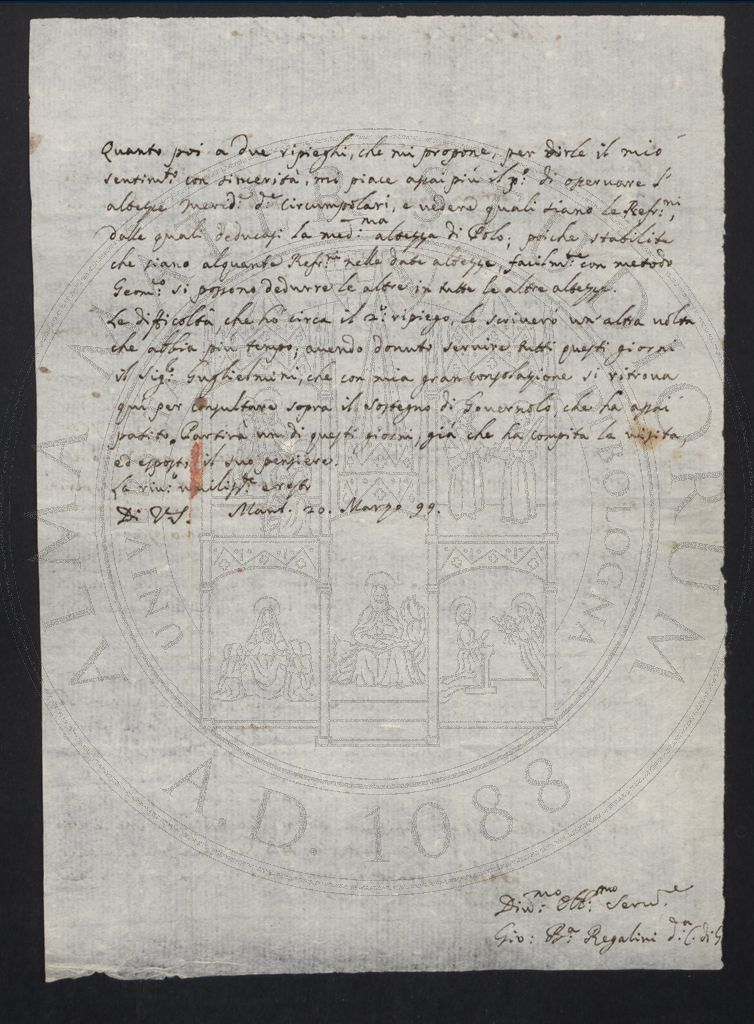 Quanto poi a due ripieghi, che mi propone, per dirle il mio
sentim.to con sincerità, mi piace assai più il p.o di osservare l'
altezze merid.e d.e Circumpolari, e vedere quali siano le Refr.ni,
dalle quali deducasi la med.ma altezza di Polo; poiche stabilite
che siano alquante Refr.ni nelle date altezze, facilm.te con metodo
Geom.o si possono dedurre le altre in tutte le altre altezze.
Le difficoltà che hò circa il 2.o ripiego, le scriverò un'altra volta
che abbia più tempo, avendo dovuto servire tutti questi giorni
il Sig.r Guglielmini, che con mia gran consolazione si ritrova
qui per consultare sopra il sostegno di Governolo, che ha assai
patito. Partirà un di questi giorni, già che ha compita la visita
ed esposto il suo pensiere.
La riv.o umiliss.te e resto
Di V.S. Mant. 20. Marzo 99.
Div.mo Obb.mo Serv.e
Gio: B.a Regalini d.a C. di G
ALMA MATER STUDIORUM
UNIV BOLOGNA
A.D. 1088